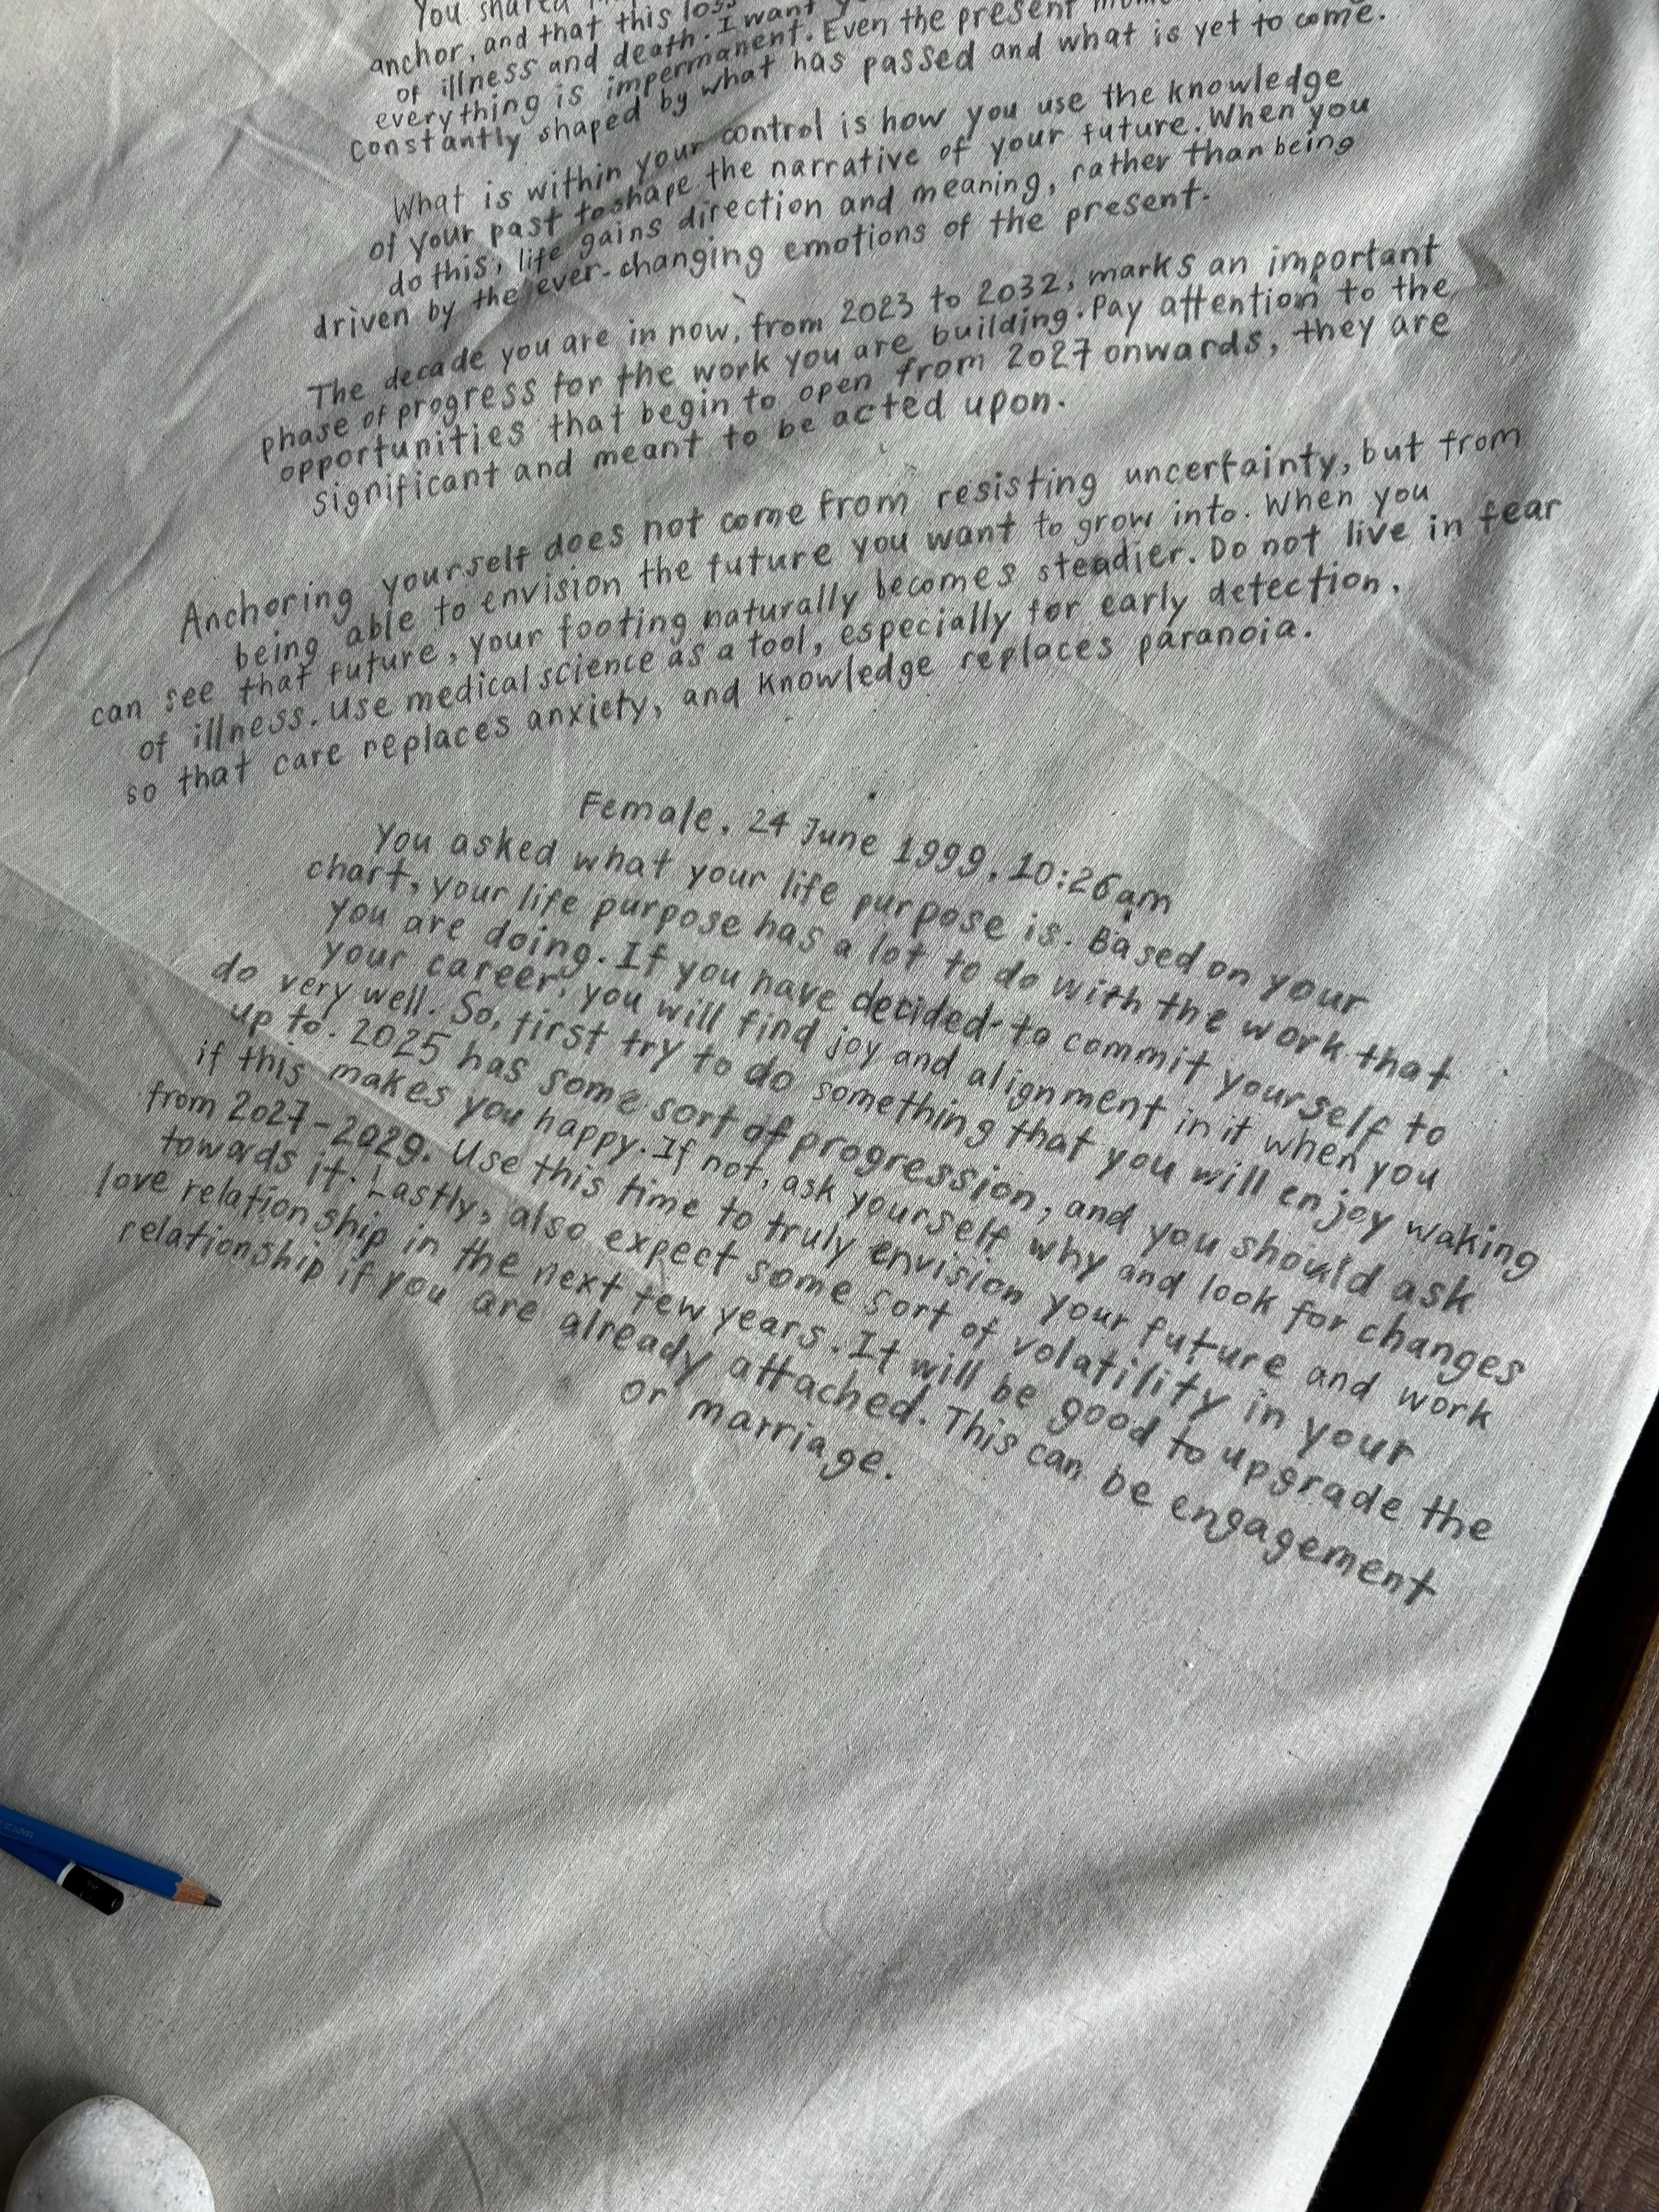 You shared
anchor, and that this loss
of illness and death. I want
everything is impermanent. Even the present
constantly shaped by what has passed and what is yet to come.
What is within your control is how you use the knowledge
of your past to shape the narrative of your future. When you
do this, life gains direction and meaning, rather than being
driven by the ever-changing emotions of the present.
The decade you are in now, from 2023 to 2032, marks an important
phase of progress for the work you are building. Pay attention to the
opportunities that begin to open from 2027 onwards, they are
significant and meant to be acted upon.
Anchoring yourself does not come from resisting uncertainty, but from
being able to envision the future you want to grow into. When you
can see that future, your footing naturally becomes steadier. Do not live in fear
of illness. Use medical science as a tool, especially for early detection.
so that care replaces anxiety, and knowledge replaces paranoia.
Female, 24 June 1999, 10:26am
You asked what your life purpose is. Based on your
chart, your life purpose has a lot to do with the work that
you are doing. If you have decided to commit yourself to
your career, you will find joy and alignment in it when you
do very well. So, first try to do something that you will enjoy waking
up to. 2025 has some sort of progression, and you should ask
if this makes you happy. If not, ask yourself why and look for changes
from 2027-2029. Use this time to truly envision your future and work
towards it. Lastly, also expect some sort of volatility in your
love relationship in the next few years. It will be good to upgrade the
relationship if you are already attached. This can be engagement
or marriage.